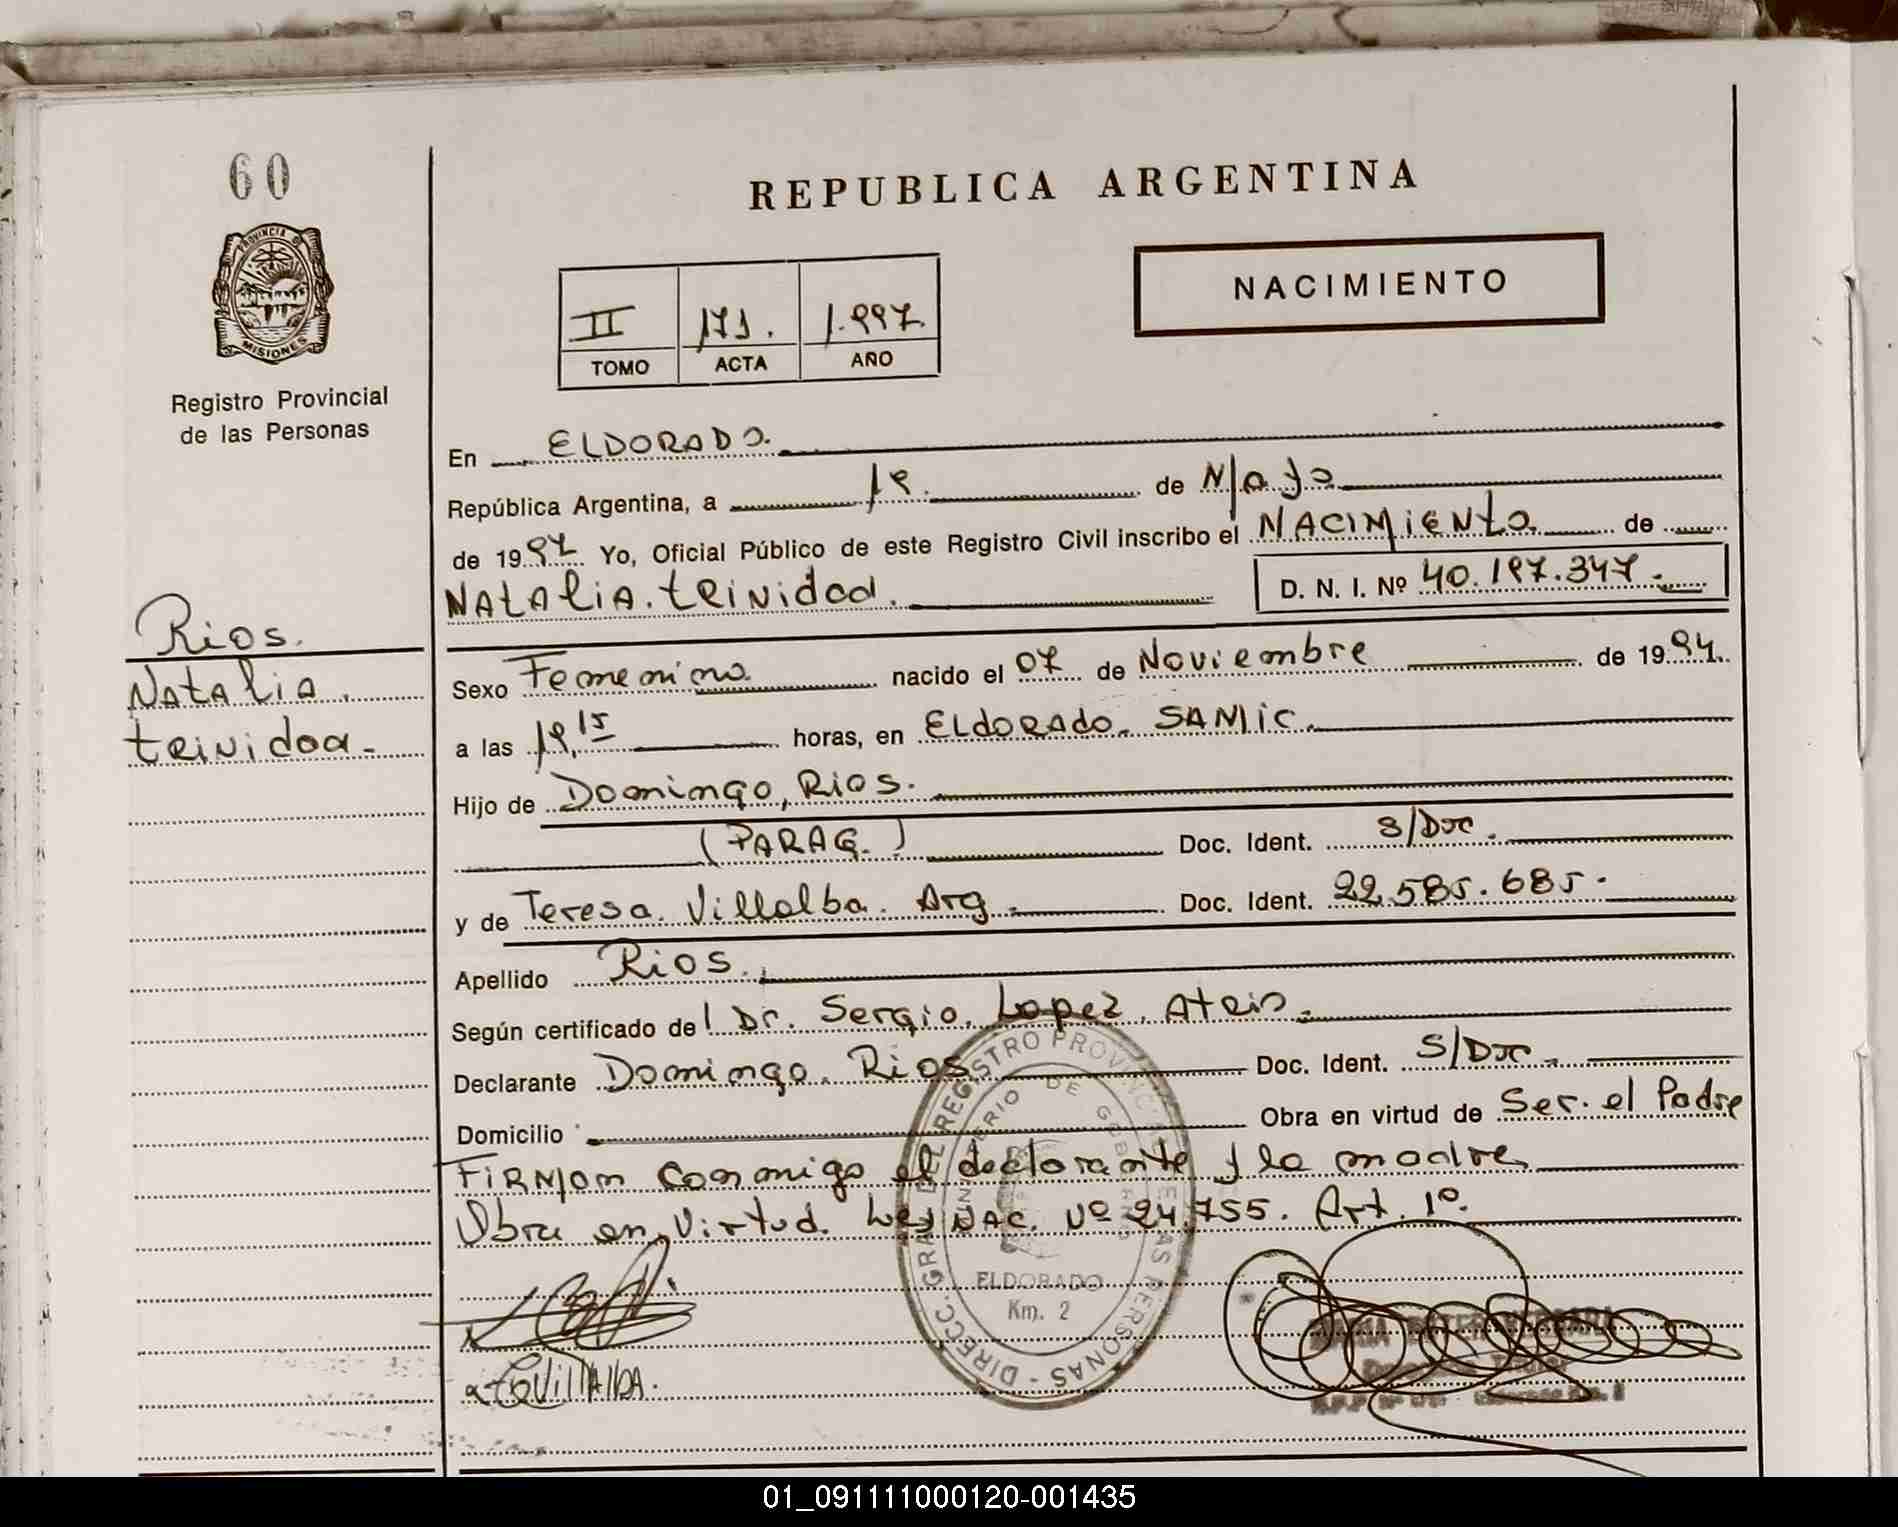 60
REPUBLICA ARGENTINA
PROVINCIA DE
MISIONES
Registro Provincial
de las Personas
NACIMIENTO
II 171. 1.997.
TOMO ACTA AÑO
En ELDORADO.
República Argentina, a 19. de Mayo
de 1997 Yo, Oficial Público de este Registro Civil inscribo el NACIMIENTO de
NAtALiA. tRiNidad. D. N. I. Nº 40.197.347.-
Rios.
NAtALiA.
tRiNidad.-
Sexo Femenino. nacido el 07 de Noviembre de 1994.
a las 19,15 horas, en ELdORAdo. SAMIC.
Hijo de Domingo, Rios.
(PARAG.) Doc. Ident. S/Doc.
y de Teresa. Villalba. Arg.- Doc. Ident. 22.585.685.
Apellido Rios.
Según certificado del Dr. Sergio. Lopez.
Declarante Domingo. Rios Doc. Ident. S/Doc.
Domicilio Obra en virtud de Ser. el Padre
FiRMan conmigo el declarante y la madre
Obra en Virtud. Ley NAC. Nº 24.755. Art. 1º.
DIRECC. GRAL. DE REGISTRO PROVINCIAL DE LAS PERSONAS
MINISTERIO DE GOBIERNO
ELDORADO
Km. 2
01_091111000120-001435